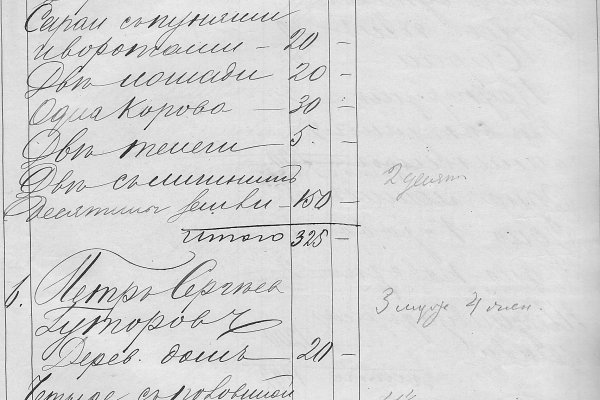 Сараи съ пунями
и воротами – 20 –
Двѣ лошади 20 –
Одна корова – 30 –
Двѣ телеги 5. –
Двѣ съ
Десятины земли – 150 – 2 десят
Итого 325 –
6. Петръ Сергѣев
Гуторовъ 3 муж 4 жен.
Дерев. домъ – 20 –
Четыре съ половиной